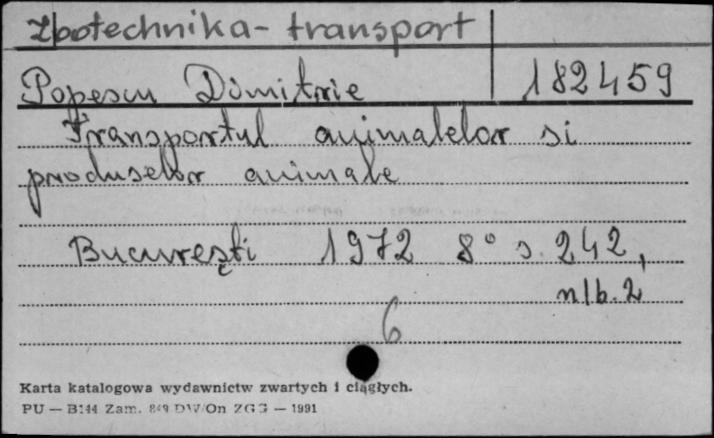 Zootechnika - transport
Popescu Dimitrie 182459
Transportul animalelor si
produselor animale
Bucureşti 1972 8° s. 242,
nlb. 2
6
Karta katalogowa wydawnictw zwartych i ciągłych.
PU — B144 Zam. DW/On ZGG — 1991